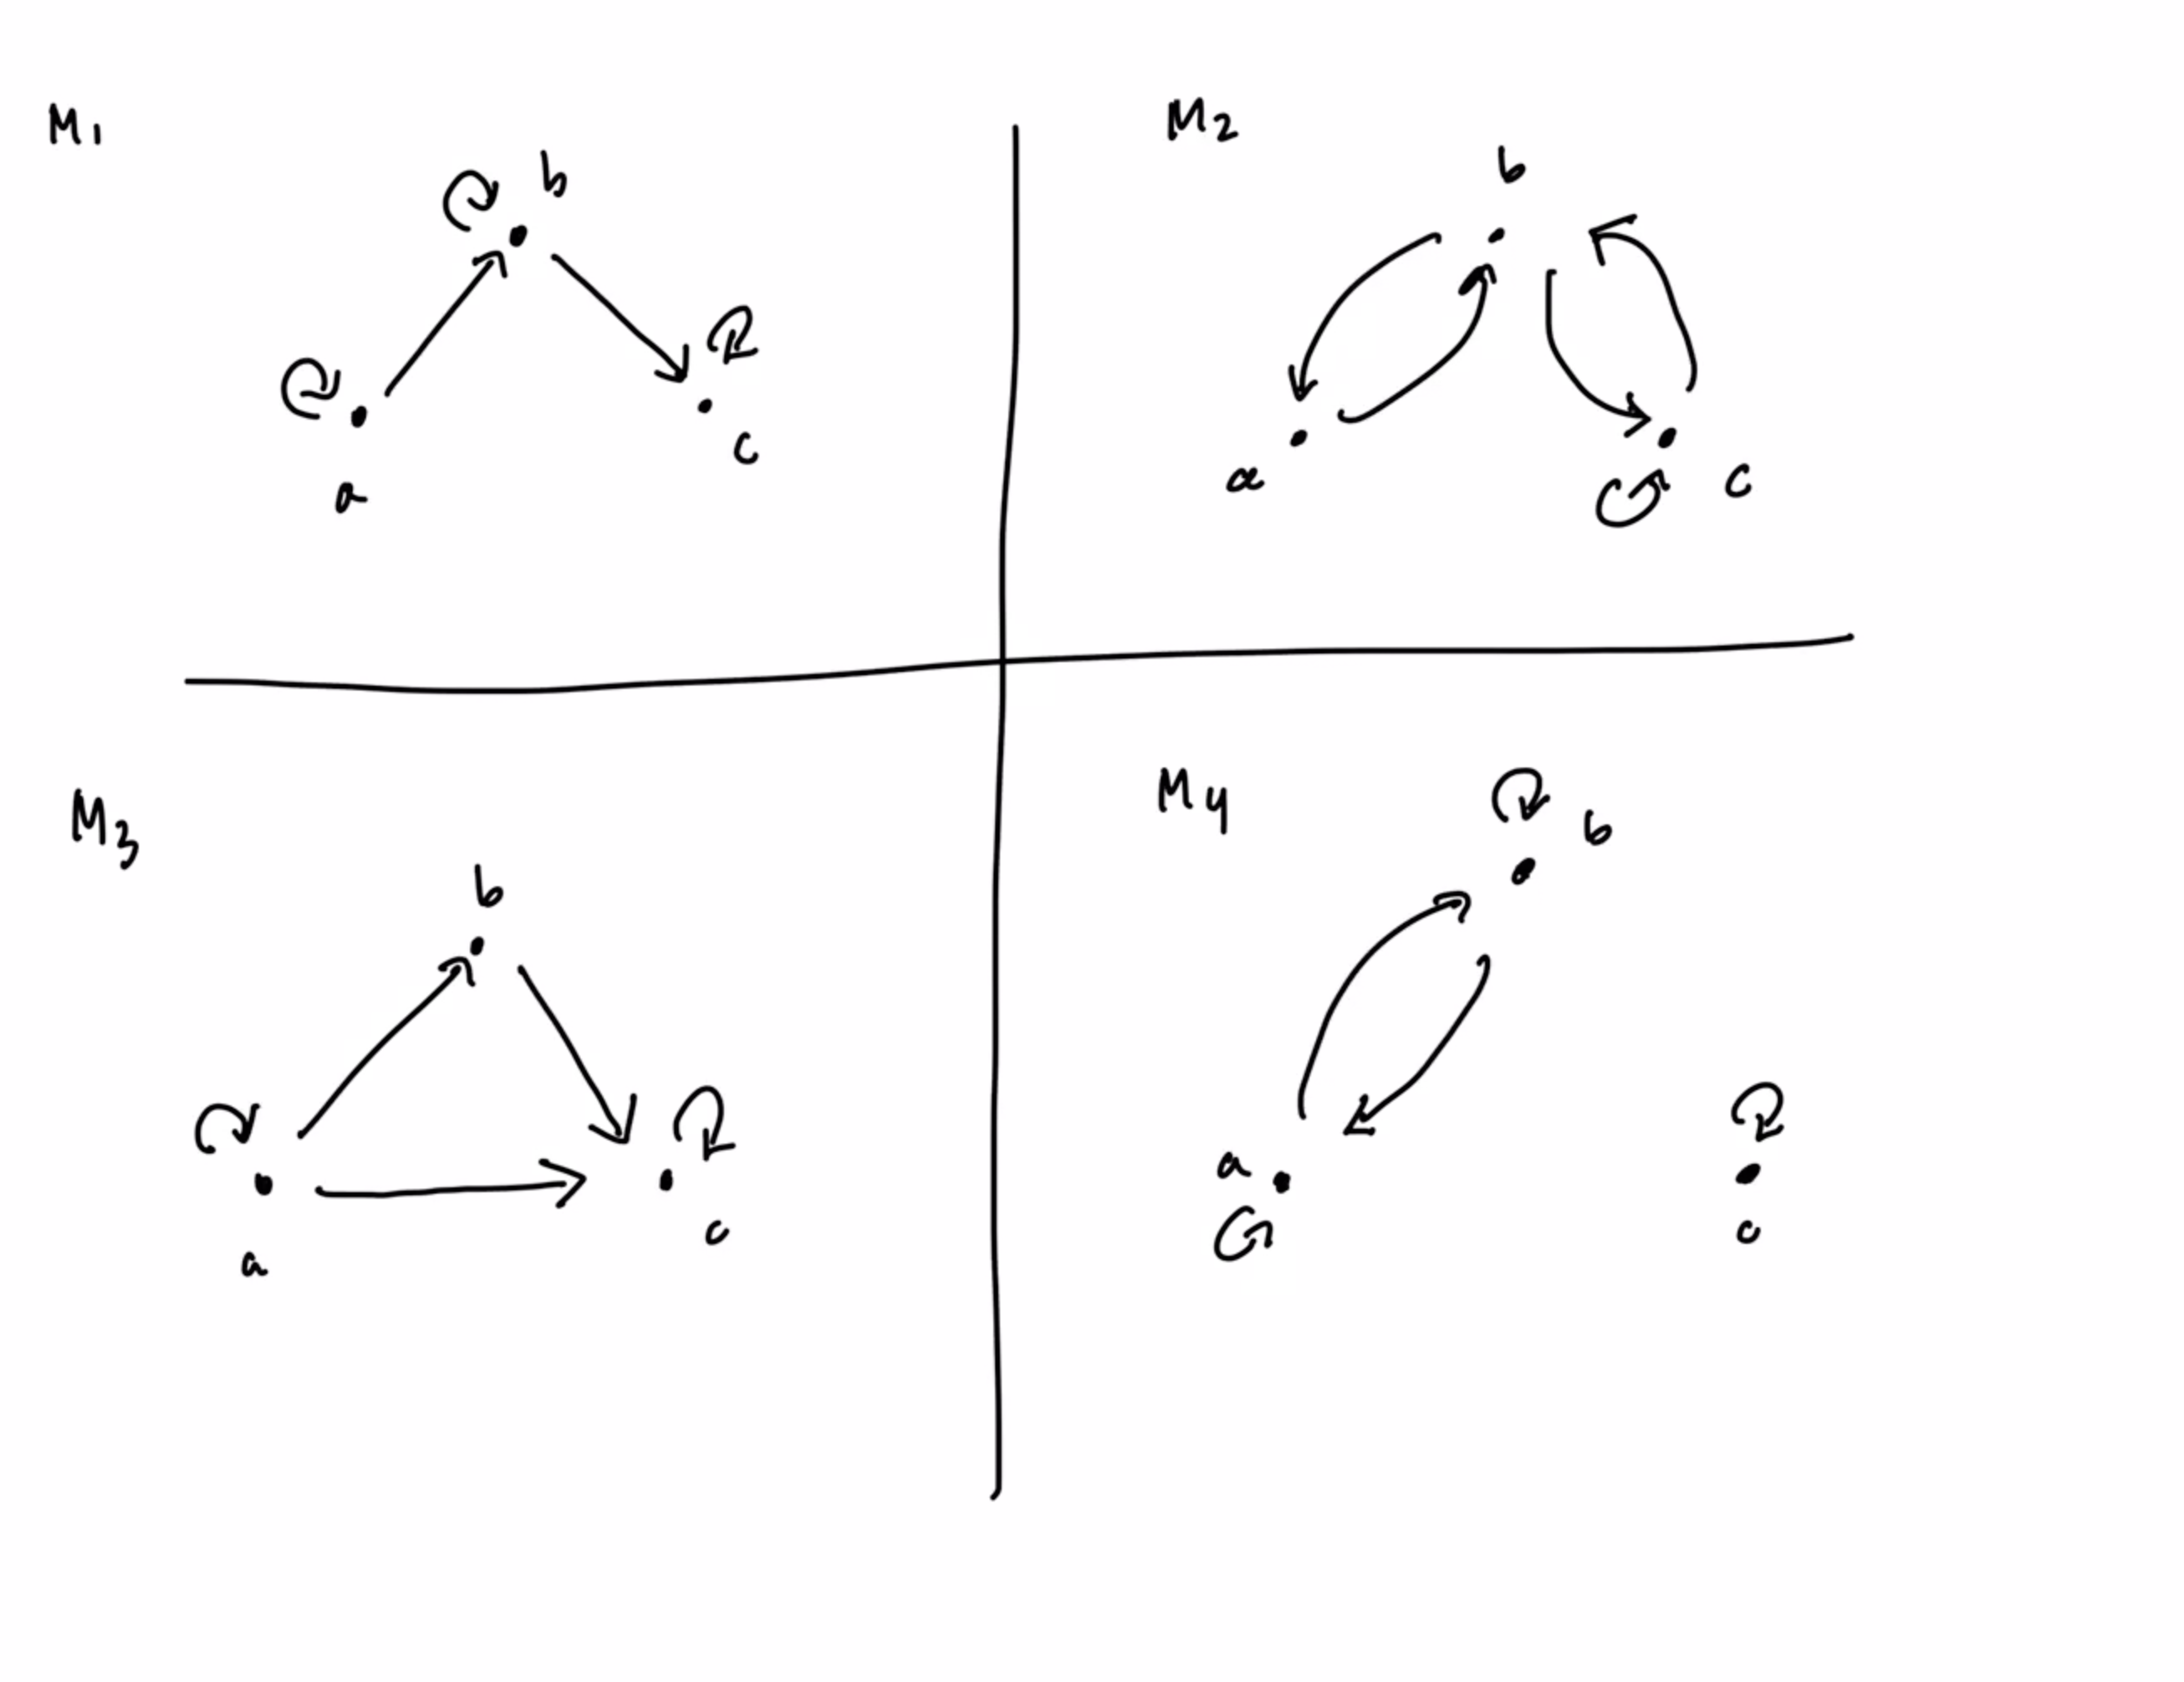 M1
b
a
c
M2
b
a
c
M3
b
a
c
M4
b
a
c